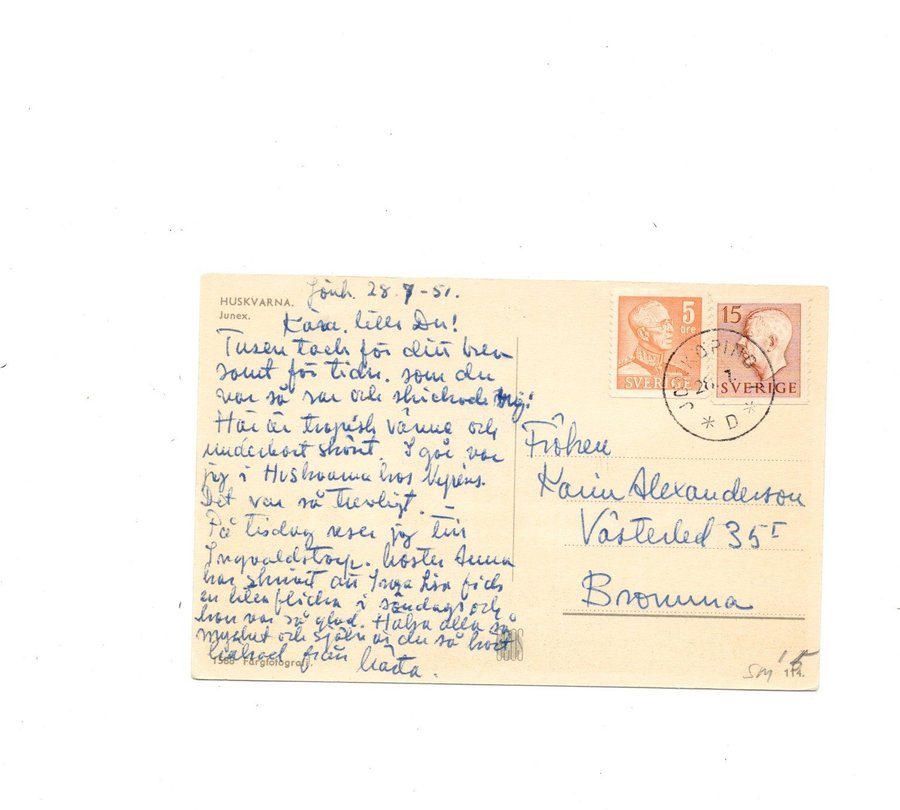 HUSKVARNA.
Junex.
Jönk. 28.7-51.
Kära lilla Du!
Tusen tack för ditt brev
samt för tidn. som du
var så rar och skickade mig!
Här är tropisk värme och
underbart skönt. I går var
jag i Huskvarna hos
Det var så trevligt. –
På tisdag reser jag till
Ingvaldstorp. Moster Anna
har skrivit att Inga Lisa fick
en liten flicka i söndags och
hon var så glad. Hälsa alla så
mycket och själv är du så hört
från Märta.
1588 Färgfotografi.
5
öre
SVERIGE
15
SVERIGE
JÖNKÖPING
D
Fröken
Karin Alexanderson
Västerled 35 I
Bromma
114.